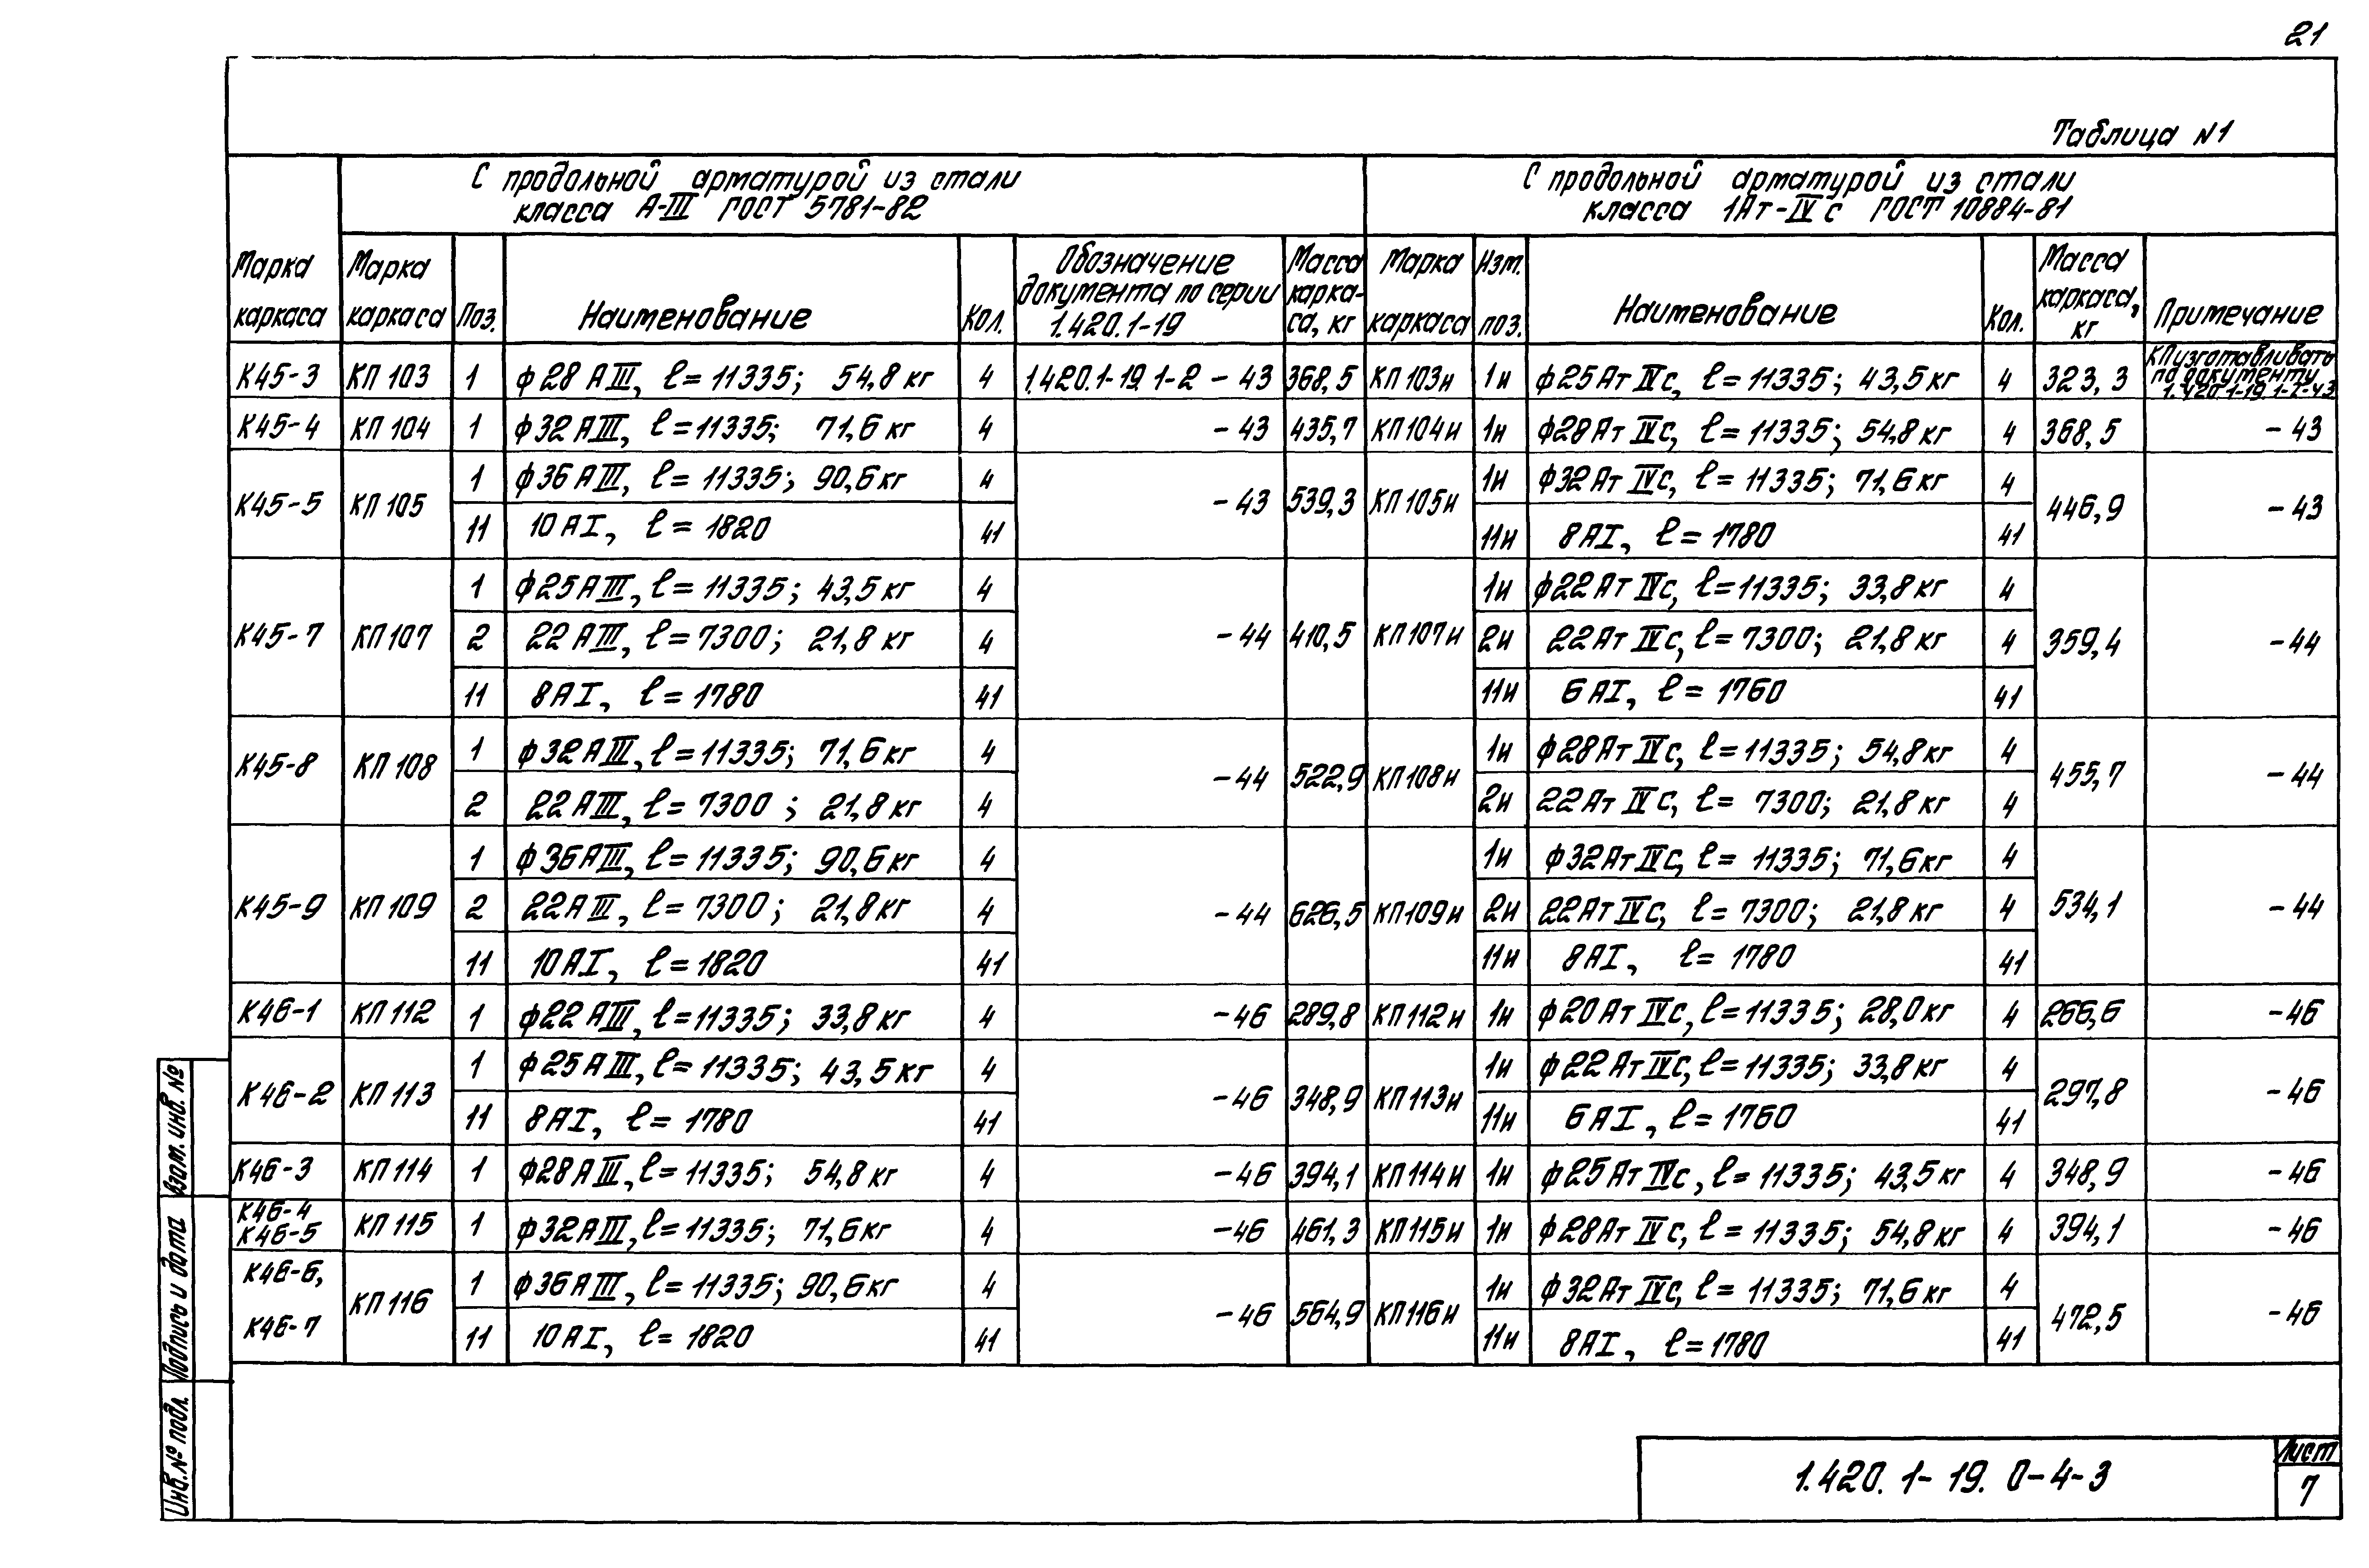 21
Таблица N1
С продольной арматурой из стали класса А-III ГОСТ 5781-82
С продольной арматурой из стали класса 1Ат-IVс ГОСТ 10884-81
Марка каркаса | Марка каркаса | Поз. | Наименование | Кол. | Обозначение документа по серии 1.420.1-19 | Масса карка-са, кг | Марка каркаса | Изм. поз. | Наименование | Кол. | Масса каркаса, кг | Примечание
К45-3 | КП 103 | 1 | ф28 АIII, ℓ=11335; 54,8 кг | 4 | 1.420.1-19.1-2-43 | 368,5 | КП103и | 1и | ф25Ат IVс, ℓ=11335; 43,5кг | 4 | 323,3 | КП изготавливать по документу 1.420.1-19.1-2-43
К45-4 | КП 104 | 1 | ф32 АIII, ℓ=11335; 71,6 кг | 4 | -43 | 435,7 | КП104и | 1и | ф28Ат IVс, ℓ=11335; 54,8кг | 4 | 368,5 | -43
К45-5 | КП 105 | 1 | ф36 АIII, ℓ=11335; 90,6кг | 4 | -43 | 539,3 | КП105и | 1и | ф32Ат IVс, ℓ=11335; 71,6кг | 4 | 446,9 | -43
11 | 10АI, ℓ=1820 | 41 | 11и | 8АI, ℓ=1780 | 41
К45-7 | КП107 | 1 | ф25АIII, ℓ=11335; 43,5кг | 4 | -44 | 410,5 | КП107и | 1и | ф22Ат IVс, ℓ=11335; 33,8кг | 4 | 359,4 | -44
2 | 22АIII, ℓ=7300; 21,8 кг | 4 | 2и | 22Ат IVс, ℓ=7300; 21,8кг | 4
11 | 8АI, ℓ=1780 | 41 | 11и | 6АI, ℓ=1760 | 41
К45-8 | КП 108 | 1 | ф32АIII, ℓ=11335; 71,6кг | 4 | -44 | 522,9 | КП108и | 1и | ф28Ат IVс, ℓ=11335; 54,8кг | 4 | 455,7 | -44
2 | 22АIII, ℓ=7300; 21,8кг | 4 | 2и | 22Ат IVс, ℓ=7300; 21,8кг | 4
К45-9 | КП 109 | 1 | ф36АIII, ℓ=11335; 90,6кг | 4 | -44 | 626,5 | КП109и | 1и | ф32Ат IVс, ℓ=11335; 71,6кг | 4 | 534,1 | -44
2 | 22АIII, ℓ=7300; 21,8кг | 4 | 2и | 22Ат IVс, ℓ=7300; 21,8кг | 4
11 | 10АI, ℓ=1820 | 41 | 11и | 8АI, ℓ=1780 | 41
К46-1 | КП 112 | 1 | ф22АIII, ℓ=11335; 33,8кг | 4 | -46 | 289,8 | КП112и | 1и | ф20Ат IVс, ℓ=11335; 28,0кг | 4 | 266,6 | -46
К46-2 | КП 113 | 1 | ф25АIII, ℓ=11335; 43,5кг | 4 | -46 | 348,9 | КП113и | 1и | ф22Ат IVс, ℓ=11335; 33,8кг | 4 | 297,8 | -46
11 | 8АI, ℓ=1780 | 41 | 11и | 6АI, ℓ=1760 | 41
К46-3 | КП 114 | 1 | ф28АIII, ℓ=11335; 54,8кг | 4 | -46 | 394,1 | КП114и | 1и | ф25Ат IVс, ℓ=11335; 43,5кг | 4 | 348,9 | -46
К46-4 К46-5 | КП 115 | 1 | ф32АIII, ℓ=11335; 71,6кг | 4 | -46 | 461,3 | КП115и | 1и | ф28Ат IVс, ℓ=11335; 54,8кг | 4 | 394,1 | -46
К46-6, К46-7 | КП 116 | 1 | ф36АIII, ℓ=11335; 90,6кг | 4 | -46 | 564,9 | КП116и | 1и | ф32Ат IVс, ℓ=11335; 71,6кг | 4 | 472,5 | -46
11 | 10АI, ℓ=1820 | 41 | 11и | 8АI, ℓ=1780 | 41
Взам. инв. №
Подпись и дата
Инв.№ подл
1.420.1-19. 0-4-3
Лист
7